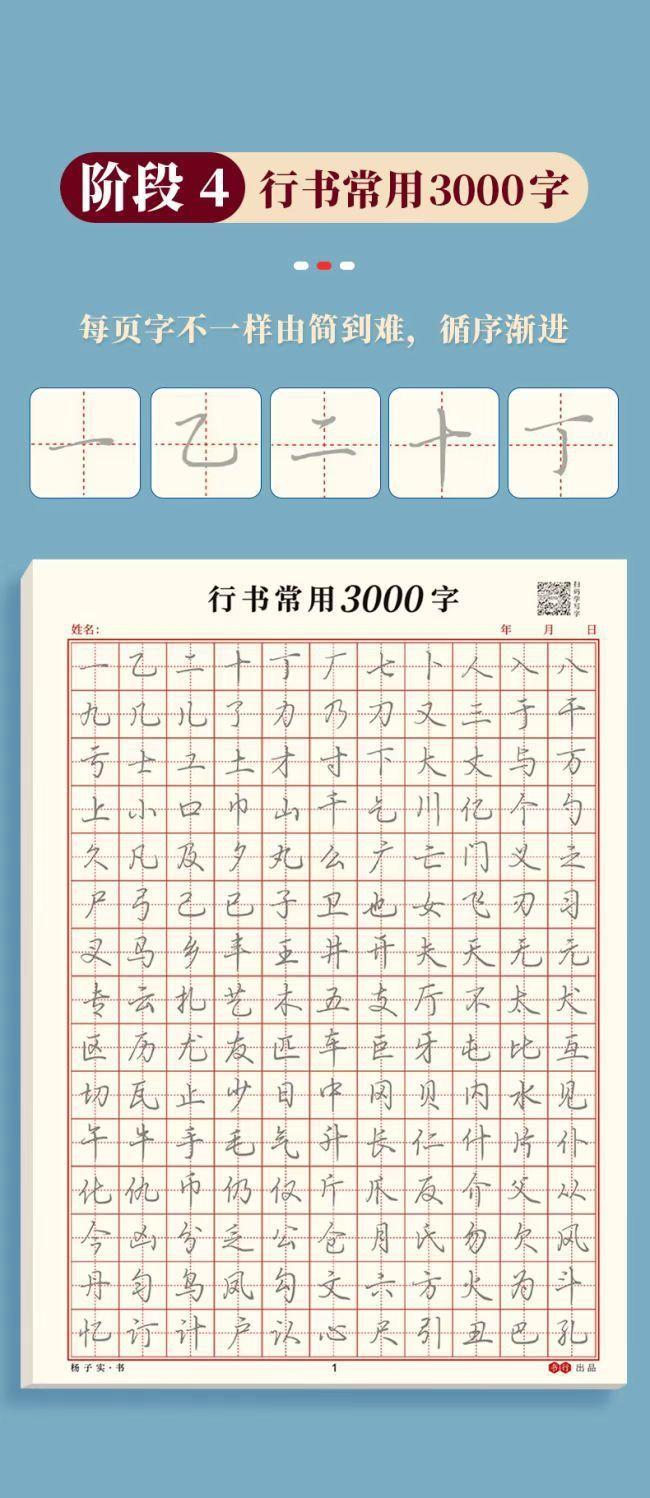 阶段 4 行书常用3000字
每页字不一样由简到难，循序渐进
一 乙 二 十 丁
行书常用3000字
扫码学写字
姓名： 年 月 日
一 乙 二 十 丁 厂 七 卜 人 入 八
九 几 儿 了 力 乃 刀 又 三 于 干
亏 士 工 土 才 寸 下 大 丈 与 万
上 小 口 巾 山 千 乞 川 亿 个 勺
久 凡 及 夕 丸 么 广 亡 门 义 之
尸 弓 己 已 子 卫 也 女 飞 刃 习
叉 马 乡 丰 王 井 开 夫 天 无 元
专 云 扎 艺 木 五 支 厅 不 太 犬
区 历 尤 友 匹 车 巨 牙 屯 比 互
切 瓦 止 少 日 中 冈 贝 内 水 见
午 牛 手 毛 气 升 长 仁 什 片 仆
化 仇 币 仍 仅 斤 爪 反 介 父 从
今 凶 分 乏 公 仓 月 氏 勿 欠 风
丹 匀 乌 凤 勾 文 六 方 火 为 斗
忆 订 计 户 认 心 尺 引 丑 巴 孔
杨子实·书 1 书行 出品